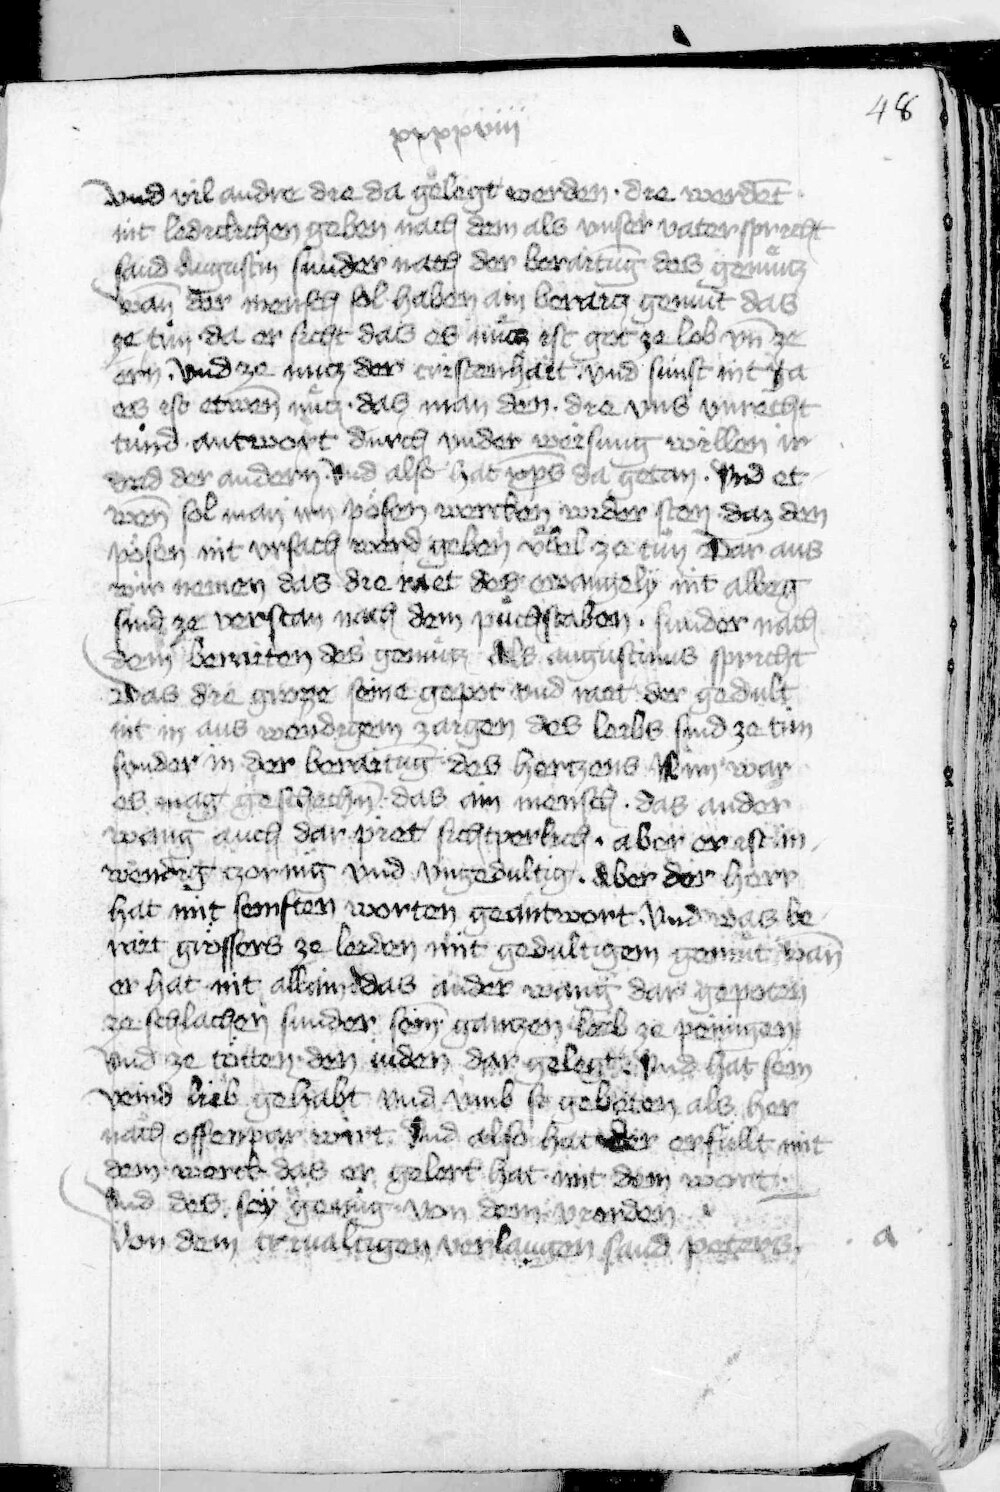 48
xxxxviii
Vnd vil andre die da gelegt werden · die werdēt
nit ledicklichen geben nach dem als vnser vater spricht
sand Augustin sunder nach der beraitūg des gemütz
wān der mensch sol haben ain beraitz gemüt das
ze tün · da er sicht das es nücz ist got ze lob vn̄ ze
ern . Vnd ze nucz der cristenhait . Vnd sunst nit Ja
es ist etwen̄ nücz · das man den · die vns vnrecht
tünd · antwort durch vnder weisung willen ir
vnd der andern . Vnd also hat xp̄s da getan . Vnd et
wen̄ sol man irn pösen wercken wider sten · daz den
pösen nit vrsach werd geben vbel ze tün Dar aus
wir nemen das die raet des ewangely nit allweg
sind ze verstan nach dem püchstaben . sunder nach
dem beraiten des gemütz Als augustinus spricht
Das die grozze seine gepot vnd raet der gedult
nit in aus wendigem zaigen des leibs sind ze tün
sunder in der beraitūg des hertzens Nim war
es mag geschehn̄ · das ain mensch · das ander
wang auch dar piet sichtperlich · aber er ist in
wendig czornig vnd vngedultig . Aber der herr
hat mit semften worten geantwort . Vnd was be
rait grössers ze leiden mit gedultigem gemüt wān
er hat nit allain das ander wang dar gepoten
ze schlachen sunder sein̄ gantzen leib ze peinigen
Vnd ze tötten · den iuden dar gelegt . Vnd hat sein
veind lieb gehabt Vnd vmb sy gebeten als her
nach offenpar wirt . Vnd also hat der erfüllt mit
dem werck das er gelert hat · mit dem wort .
Vnd des sey genüg von dem
Von dem triualtigen verlaugen sand peters .
a